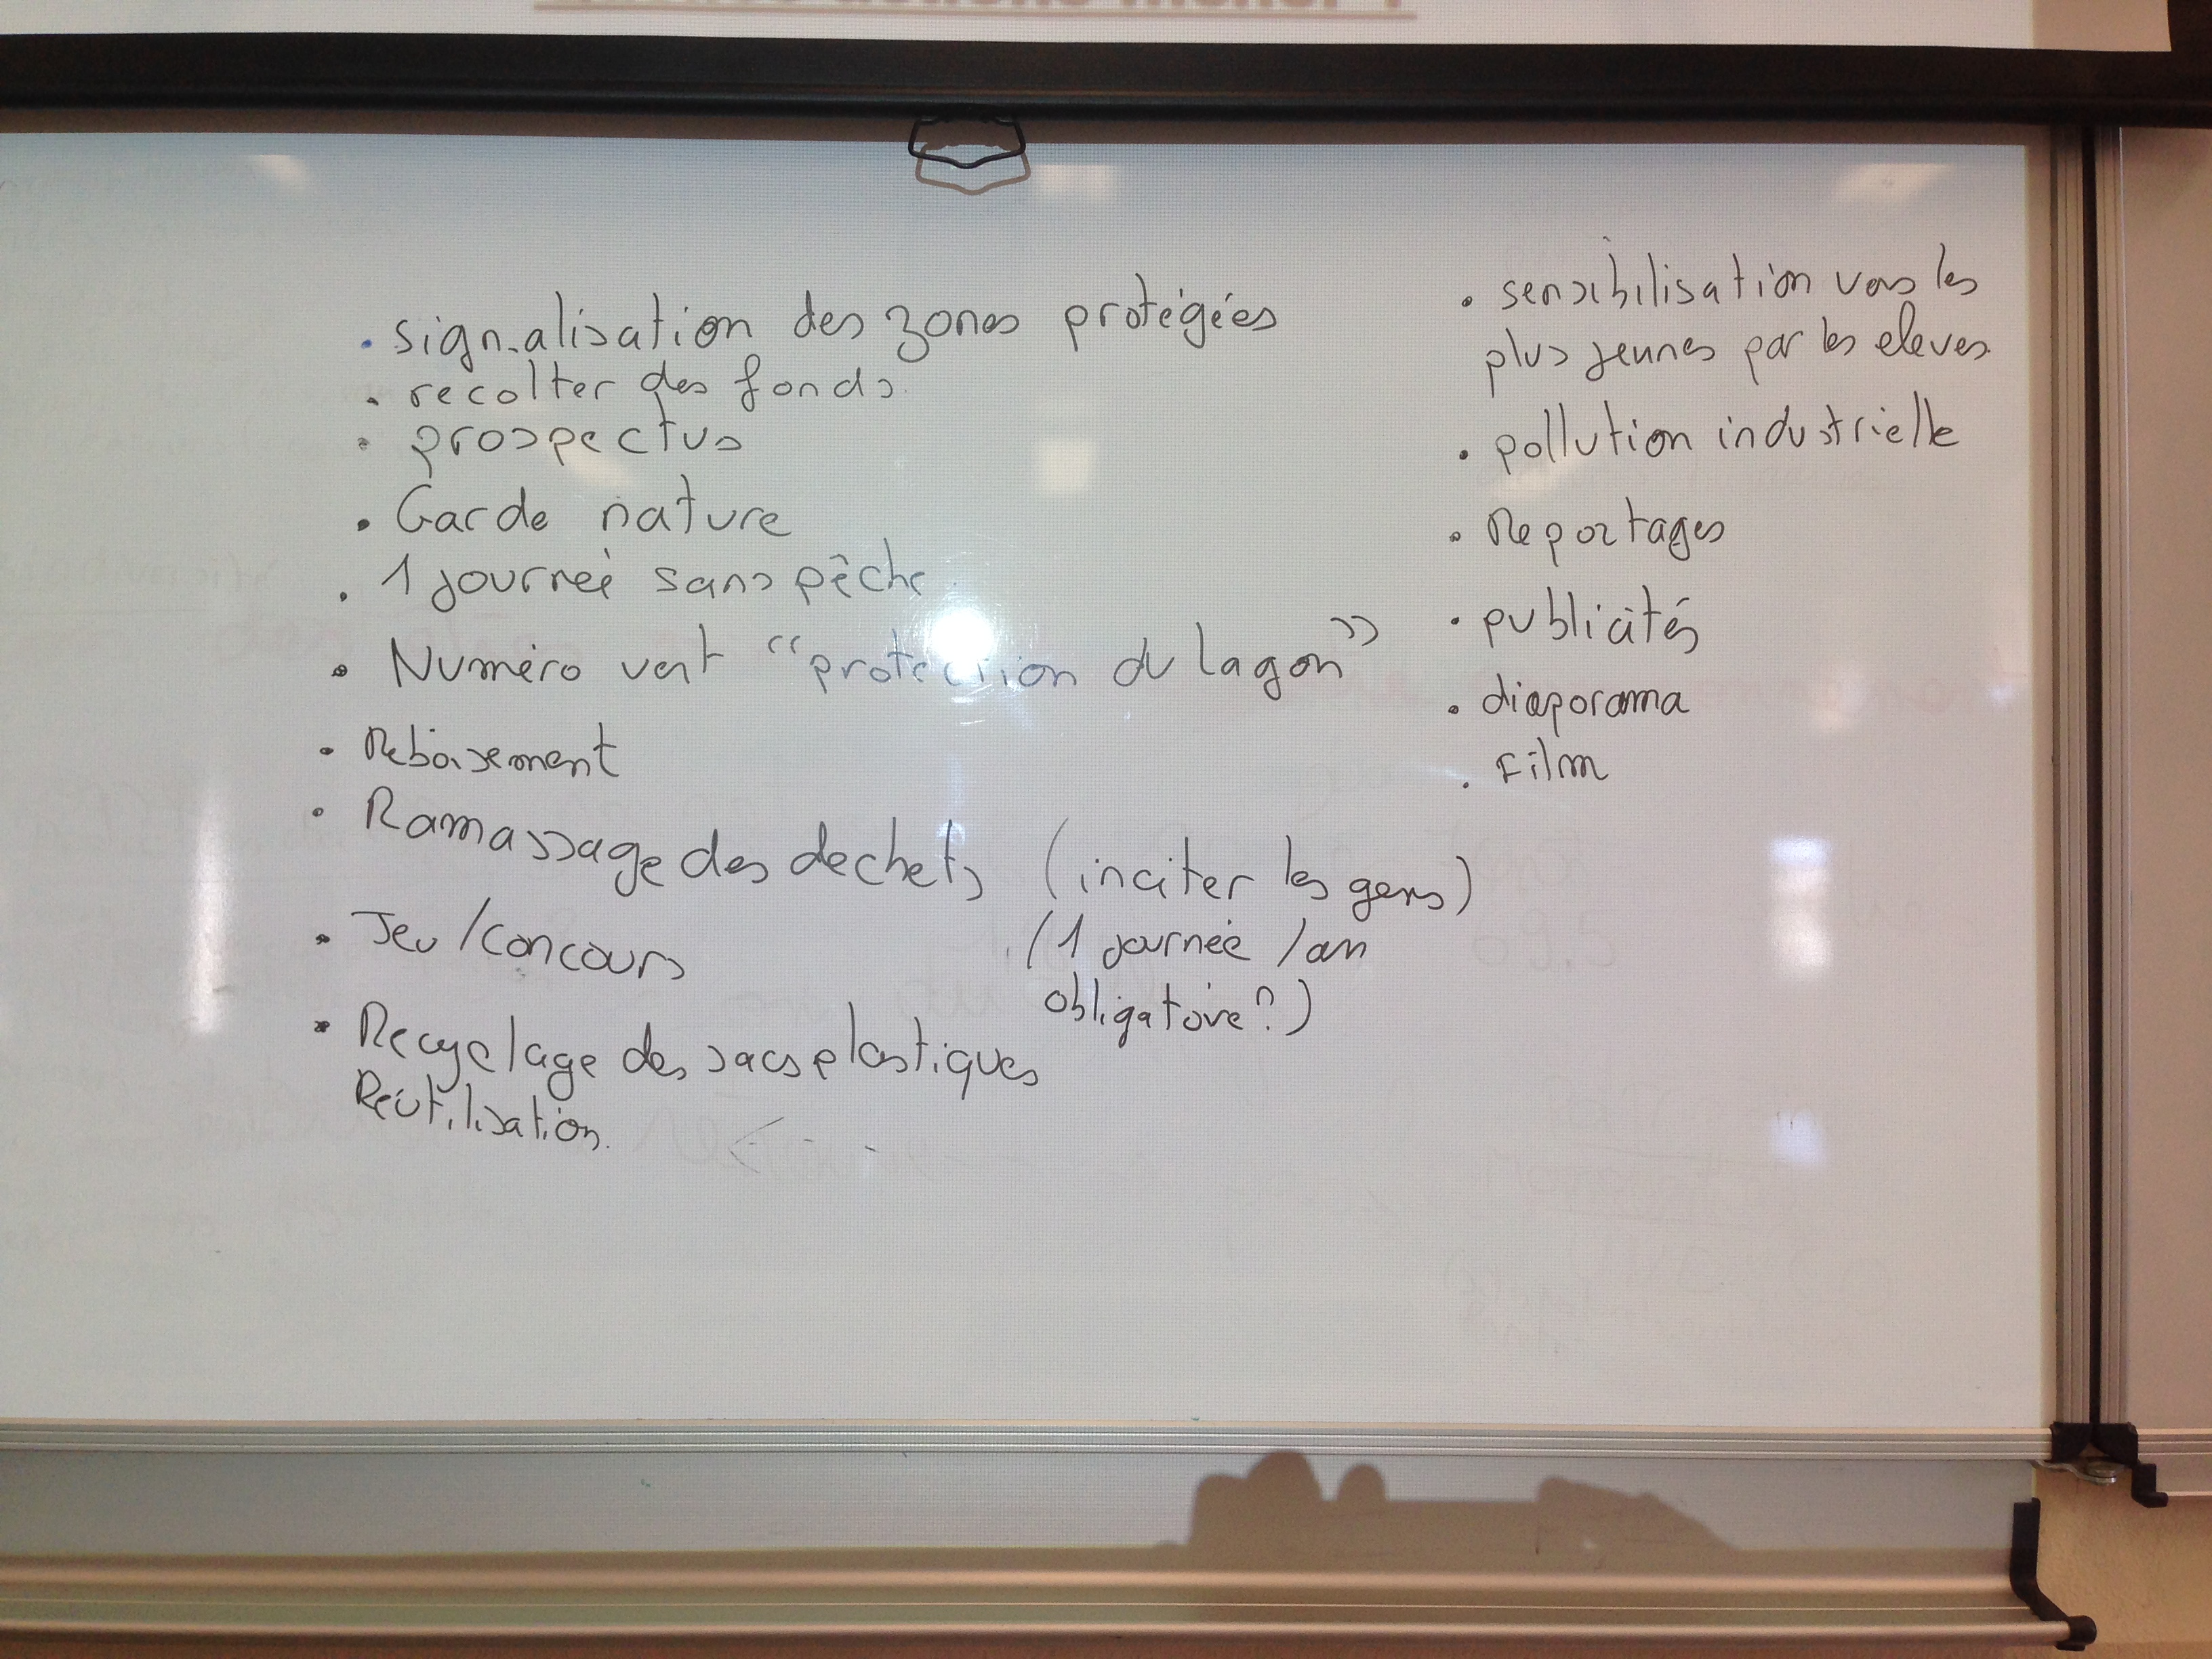 • signalisation des zones protégées
• recolter des fonds.
• prospectus
• Garde nature
• 1 journée sans pêche
• Numéro vert "protection du lagon"
• Reboisement
• Ramassage des dechets (inciter les gens)
(1 journée /an
obligatoire?)
• Jeu/concours
• Recyclage des sacs plastiques
Réutilisation.
• sensibilisation vers les
plus jeunes par les eleves.
• pollution industrielle
• Reportages
• publicités
• diaporama
• Film